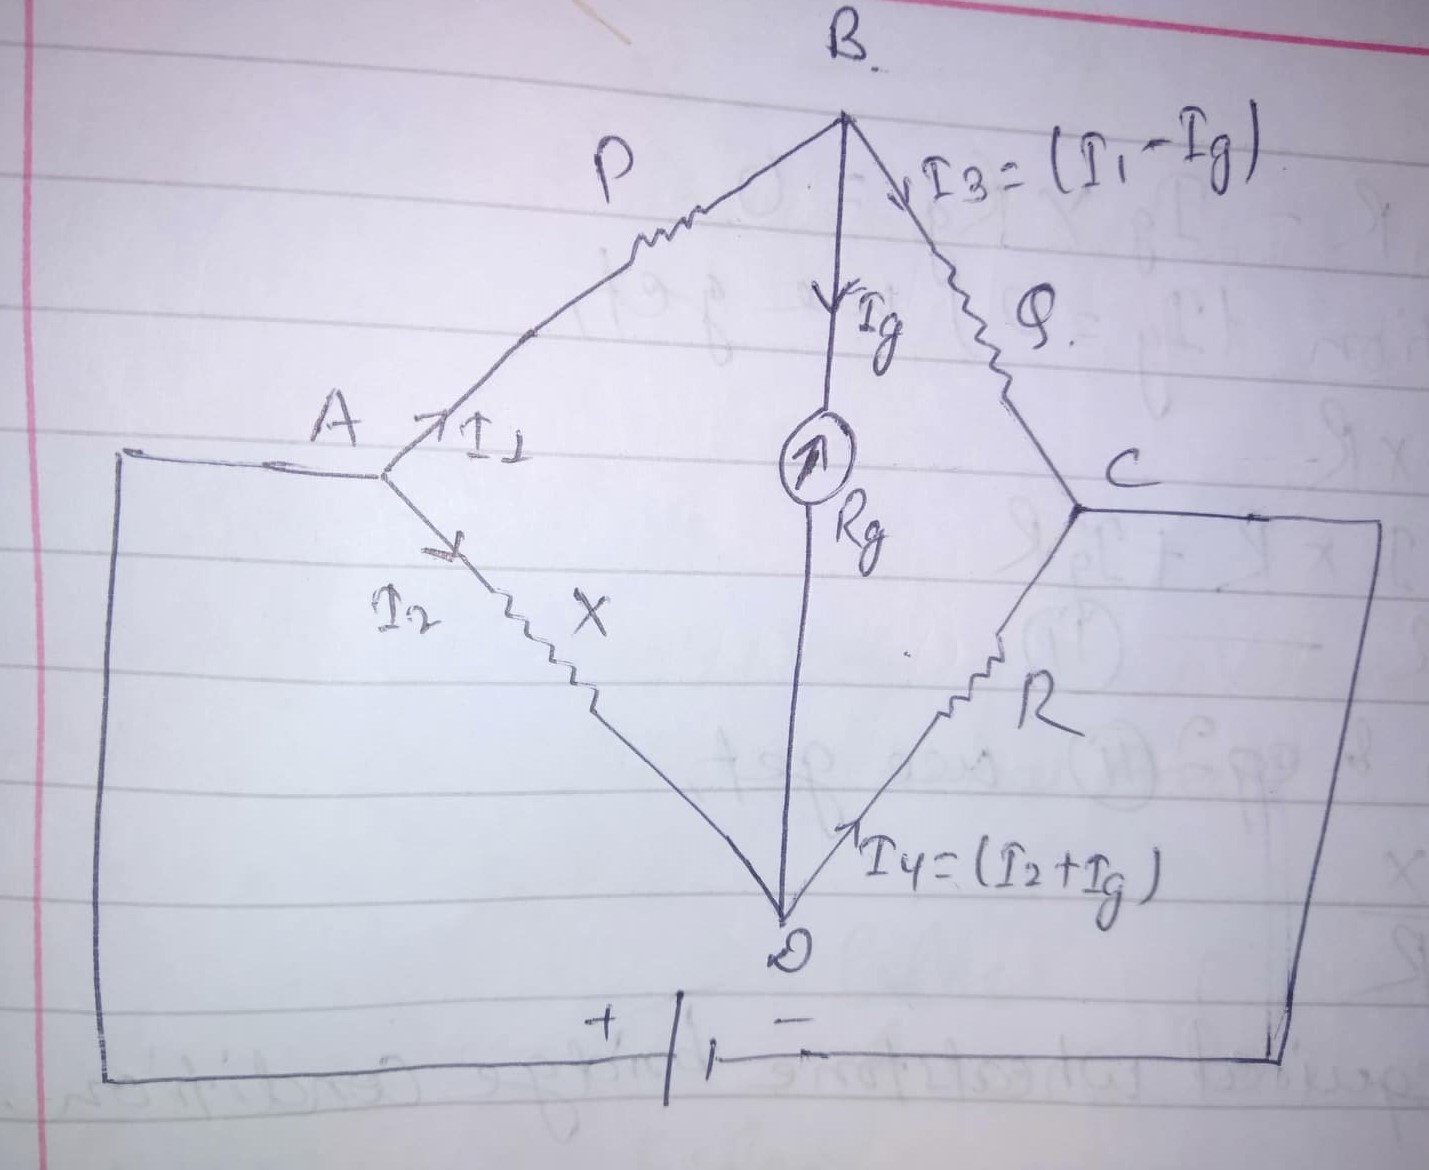 B.
P
I3 = (I1 - Ig)
Ig
Q.
A
I1
C
Rg
I2
X
R
I4 = (I2 + Ig)
D
+ -